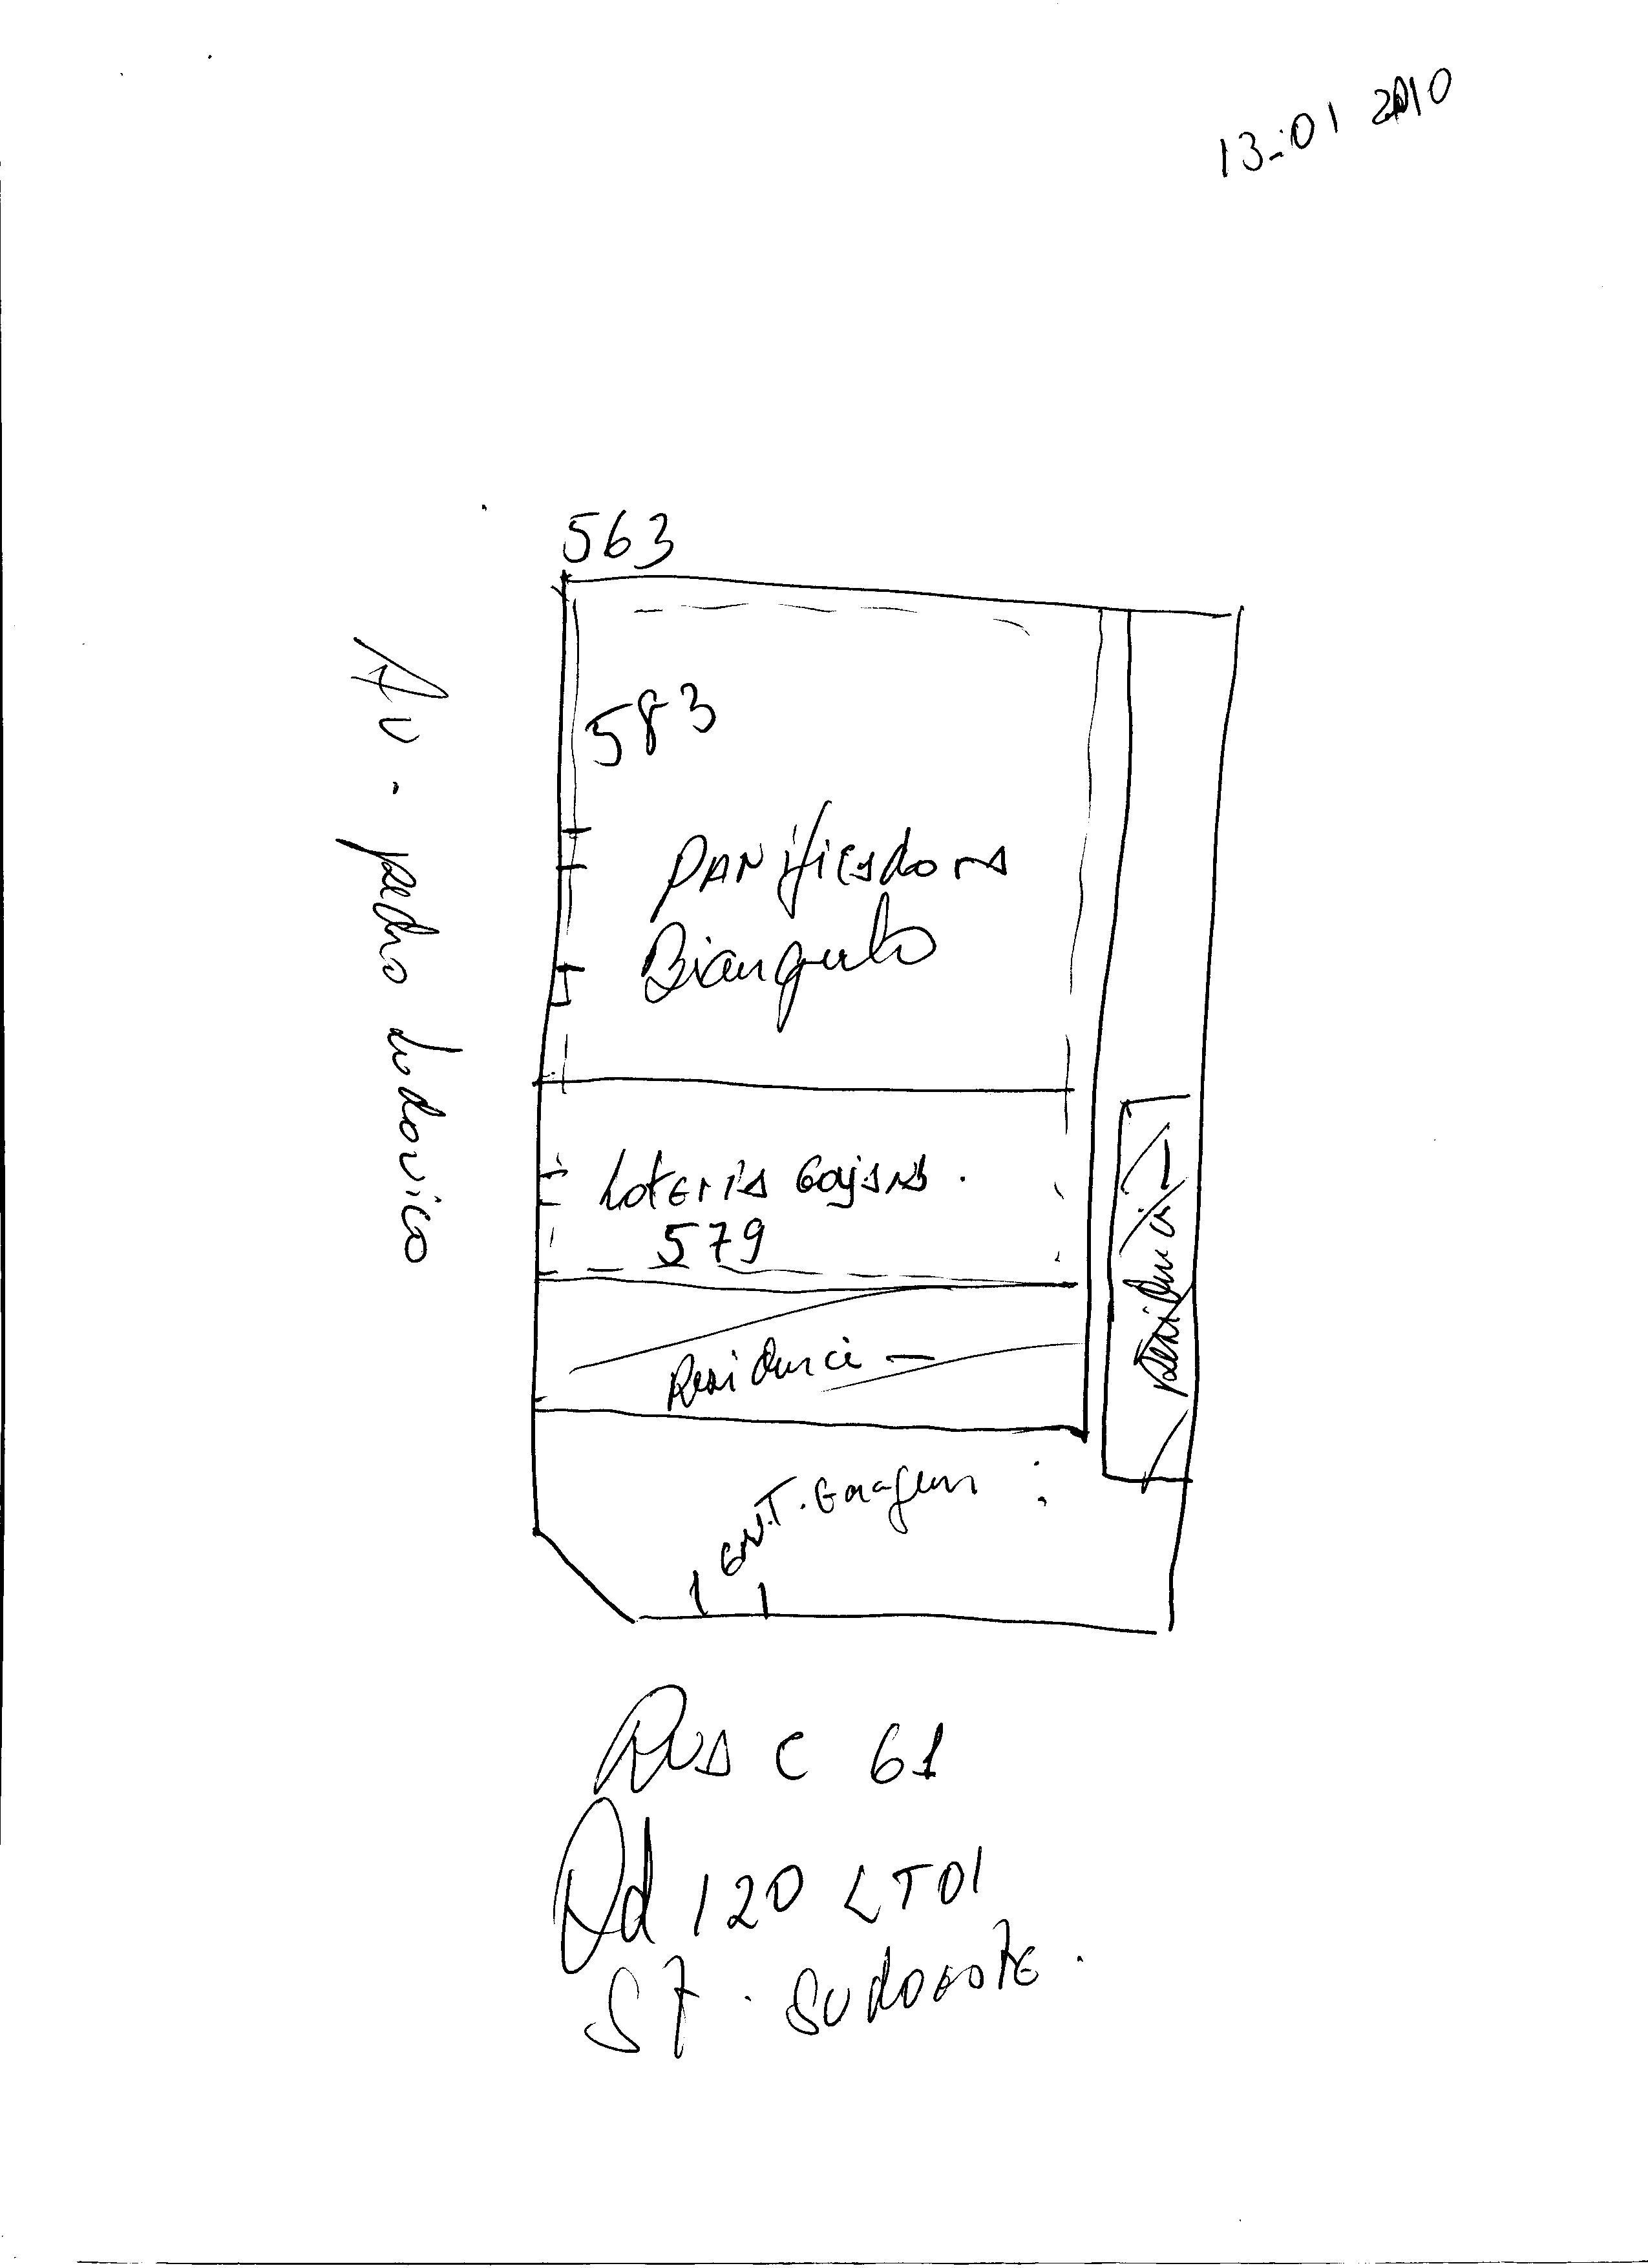 13-01 2010
563
583
Av. pedro Ludovico
Panificadora
Biangulo
Loteria Gojana.
579
Residenci
Residenci
Ent. Garagem
Rua C 61
Qd 120 LT01
ST. Sudoeste.